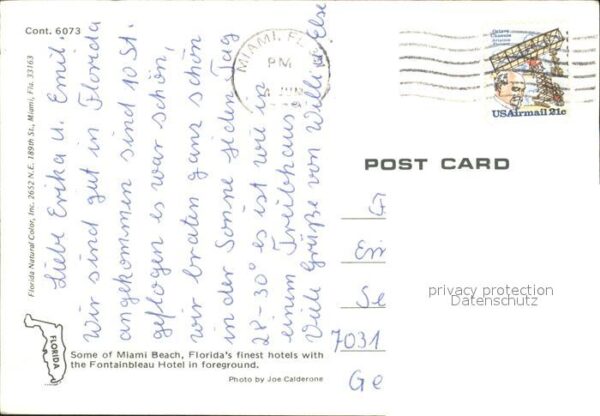 Cont. 6073
Florida Natural Color, Inc. 2652 N.E. 189th St., Miami, Fla. 33163
Liebe Erika u. Emil.
Wir sind gut in Florida
angekommen sind 10 St.
geflogen es war schön,
wir braten ganz schön
in der Sonne jeden Tag
28-30° es ist wie in
einem Treibhaus
Viele Grüße von Willi u. Else
MIAMI, FL
PM
Octave
Chanute
Aviation
Pioneer
USAirmail 21c
POST CARD
G
Em
Se
7031
Ge
privacy protection
Datenschutz
FLORIDA
Some of Miami Beach, Florida's finest hotels with
the Fontainbleau Hotel in foreground.
Photo by Joe Calderone